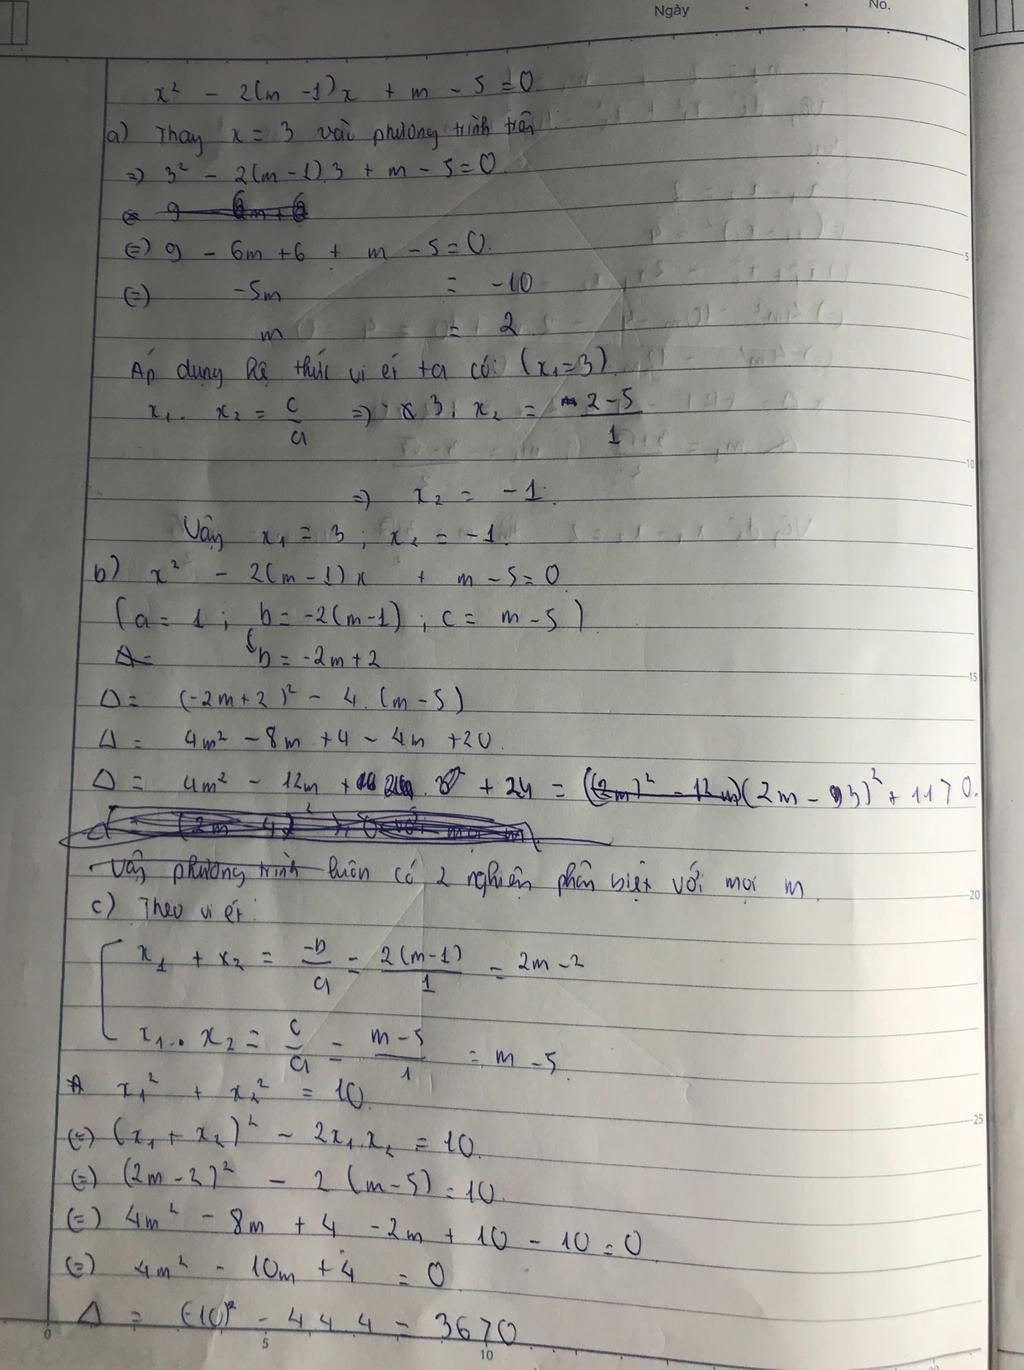 Ngày No.
x² - 2(m - 1)x + m - 5 = 0
a) Thay x = 3 vào phương trình trên
=> 3² - 2(m - 1).3 + m - 5 = 0
(=) 9 - 6m + 6 + m - 5 = 0.
(=) -5m = -10
m = 2
Áp dụng hệ thức vi ét ta có: (x₁ = 3)
x₁ . x₂ = c/a => 3 . x₂ = 2 - 5/1
=> x₂ = -1.
Vậy x₁ = 3 ; x₂ = -1.
b) x² - 2(m - 1)x + m - 5 = 0
(a = 1 ; b = -2(m - 1) ; c = m - 5)
b = -2m + 2
Δ = (-2m + 2)² - 4.(m - 5)
Δ = 4m² - 8m + 4 - 4m + 20.
Δ = 4m² - 12m + 24 = (2m - 3)² + 117 0.
Vậy phương trình luôn có 2 nghiệm phân biệt với mọi m.
c) Theo vi ét:
x₁ + x₂ = -b/a = 2(m-1)/1 = 2m - 2
x₁ . x₂ = c/a = m - 5/1 = m - 5.
x₁² + x₂² = 10
(=) (x₁ + x₂)² - 2x₁x₂ = 10.
(=) (2m - 2)² - 2(m - 5) = 10.
(=) 4m² - 8m + 4 - 2m + 10 - 10 = 0
(=) 4m² - 10m + 4 = 0
Δ = (-10)² - 4.4.4 = 367 0
5
10
15
20
25
0
5
10